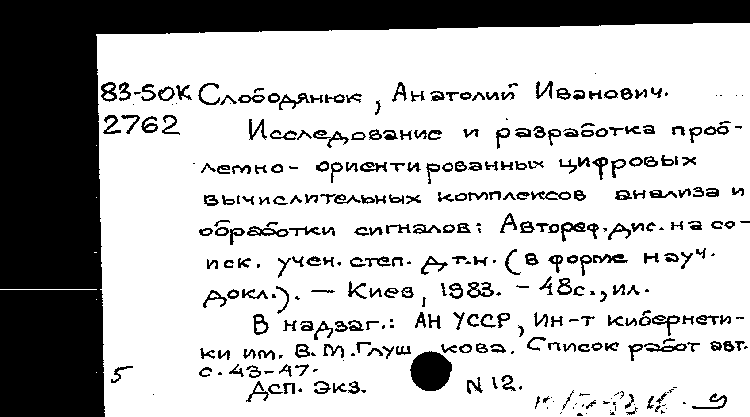 83-50К Слободянюк, Анатолий Иванович.
2762 Исследование и разработка проб-
лемно-ориентированных цифровых
вычислительных комплексов анализа и
обработки сигналов: Автореф. дис. на со-
иск. учен. степ. д.т.н. (в форме науч.
докл.). — Киев, 1983. - 48с., ил.
В надзаг.: АН УССР, Ин-т кибернети-
ки им. В.М.Глушкова. Список работ авт.
с. 43-47.
5 Дсп. Экз. N 12.